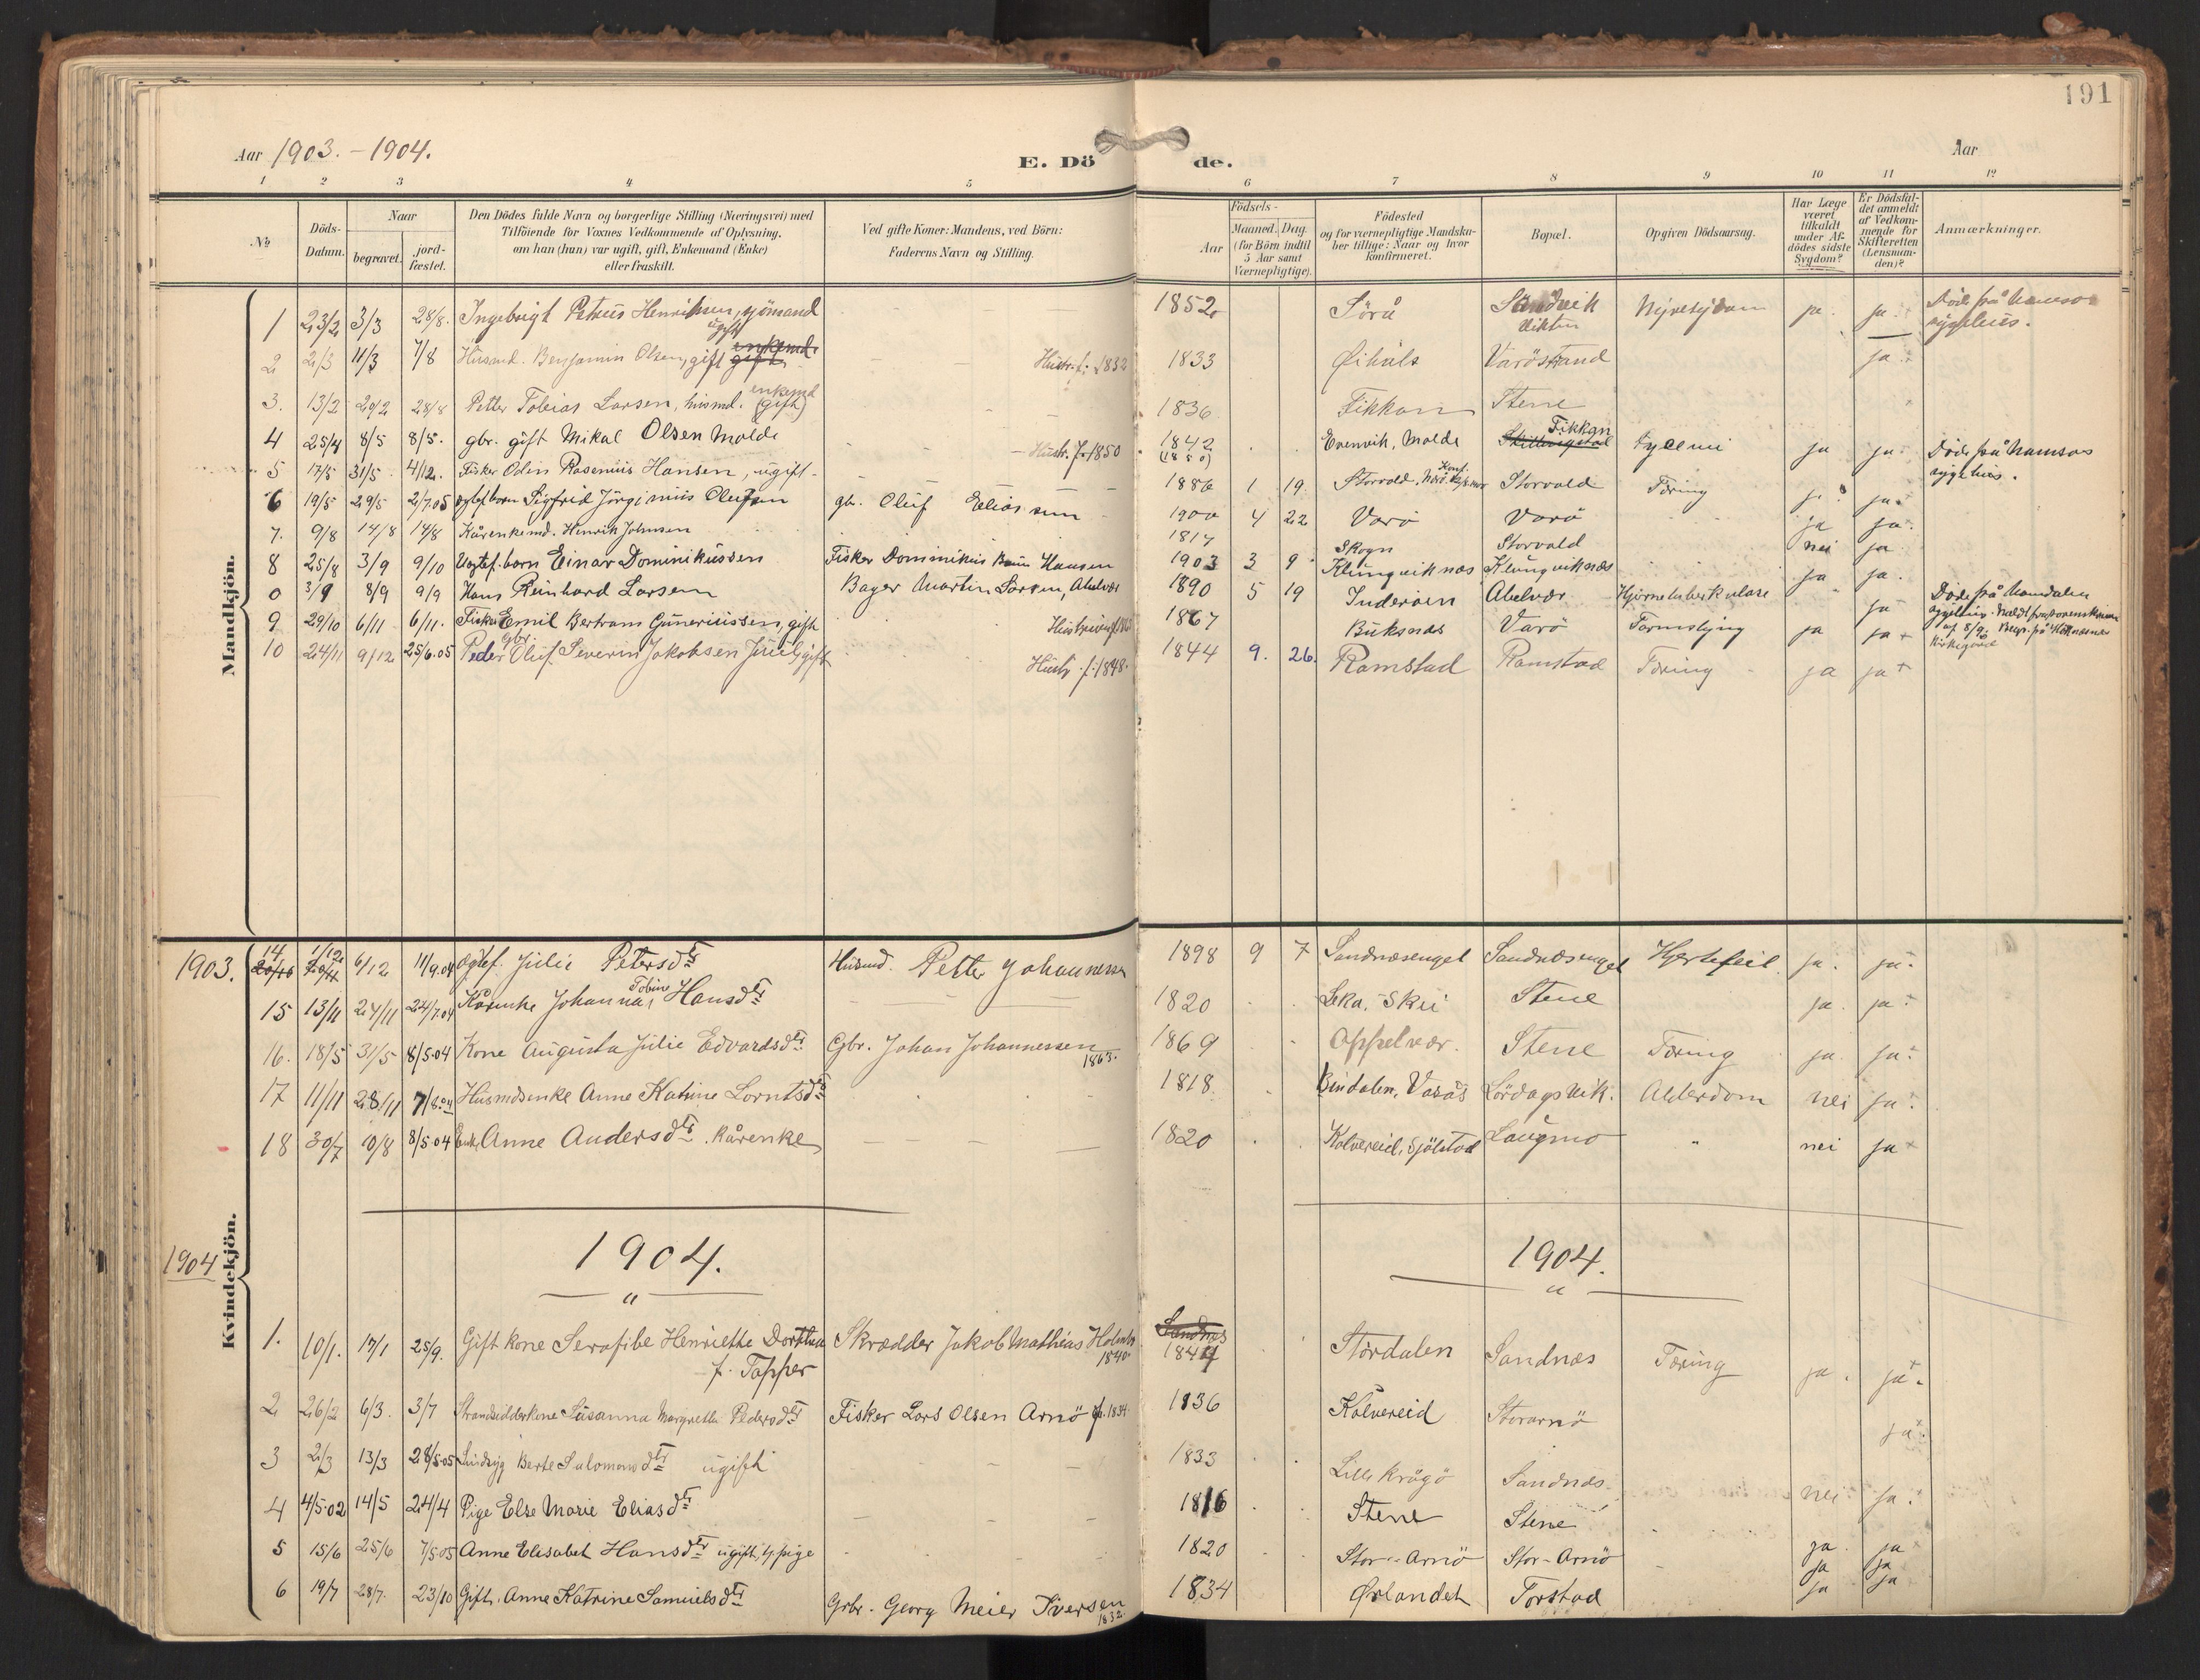 191
Aar 1903. - 1904.
E. Dö de.
Aar
1 2 3 4 5 6 7 8 9 10 11 12
No
Döds-Datum.
Naar begravet. jordfæstet.
Den Dödes fulde Navn og borgerlige Stilling (Næringsvei) med
Tilföiende for Voxnes Vedkommende af Oplysning,
om han (hun) var ugift, gift, Enkemand (Enke)
eller fraskilt.
Ved gifte Koner: Mandens, ved Börn:
Faderens Navn og Stilling.
Födsels-
Aar
Maaned. Dag.
(for Börn indtil
5 Aar samt
Værnepligtige).
Födested
og for værnepligtige Mandska-
ber tillige: Naar og hvor
konfirmeret.
Bopæl.
Opgiven Dödsaarsag.
Har Læge
været
tilkaldt
under Af-
dödes sidste
Sygdom?
Er Dödsfal-
det anmeldt
af Vedkom-
mende for
Skifteretten
(Lensman-
den)?
Anmærkninger.
Mandkjön.
1 23/2 3/3 28/8. Ingebrigt Petrus Henriksen, sjömand ugift 1852 Sörå Sandvik Nyresygdom ja. ja. Döde på Namsos sygehus.
2 2/3 11/3 7/8 Husmd. Benjamin Olsen, gift enkemd. gift Hustr. f. 1832 1833 Öihals Varöstrand ja
3. 13/2 20/2 28/8 Petter Tobias Larsen, husmd. enkemd (gift) 1836 Fikkan Stene
4 25/4 8/5 8/5. gbr. gift Mikal Olsen Molde Hustr. f. 1850 1842 (1850) Evenvik, Molde Fikkan ja ja Döde på Namsos sygehus.
5 17/5 31/5 4/12. Fisker Odin Rasmus Hansen, ugift 1886 1 19 Storvold, Konf. Storvold Tæring ja
6 19/5 29/5 2/7.05 ægtef. barn Sigfrid Jörginius Olufsen gbr. Oluf Eliassen 1900 4 22 Varö Varö ja ja.
7. 9/8 14/8 14/8 Kårenkemd. Henrik Johnsen 1817 Skogn Storvold nei ja
8 25/8 3/9 9/10 Uægtef. barn Einar Dominikussen Fisker Dominikus Hansen 1903 3 9 Klungviknæs Klungviknæs ja ja.
0 3/9 8/9 9/9 Hans Reinhard Larsen Bager Martin Larsen, Abelvær 1890 5 19 Inderöen Abelvær Hjernetuberkulose ja Döde på Namdalen sygehus.
9 29/10 6/11 6/11. Fisker Emil Bertram Guneriussen, gift 1867 Buksnæs Varö Tarmslyng ja ja
10 24/11 9/12 25/6.05 Peder gbr. Oluf Severin Jakobsen Juul, gift Hustr. f. 1848. 1844 9. 26. Ramstad Ramstad Tæring ja ja
1903.
14 1/12 6/12 11/9.04 Ægtef. Julie Petersdtr Husmd. Petter Johannesen 1898 9 7 Sandnæsenget Sandnæsenget Hjertefeil ja. ja.
15 13/11 24/11 24/7.04 Kårenke Johanna Tobine Hansdtr 1820 Leka, Skei Stene ja. ja.
16. 18/5 31/5 8/5.04 Kone Augusta Julie Edvardsdtr Gbr. Johan Johannessen 1863. 1869 Appelvær. Stene Tæring ja. ja.
17 11/11 28/11 7/8.04 Husmdsenke Anne Katrine Lorntsdtr 1818 Bindalen, Vasås Lördagsvik. Alderdom nei ja.
18 30/7 10/8 8/5.04 Enke Anne Andersdtr. kårenke 1820 Kolvereid, Sjölstad Laugmo " nei ja
Kvindekjön.
1904
1904. 1904.
1. 10/1. 17/1 25/9. Gift kone Serafibe Henriette Dorthea f. Tapper Skrædder Jakob Mathias Holmbo 1840 Sandnæs 1844 Stördalen Sandnæs Tæring ja. ja.
2 26/2 6/3. 3/7 Strandsidderkone Susanna Margrethe Pedersdtr Fisker Lars Olsen Arnö f. 1834. 1836 Kolvereid Storarnö ja
3 2/3 13/3 28/5.05 Berte Salomonsdtr ugift 1833 Lille Krågö Sandnæs nei ja.
4 4/5.02 14/5 24/4 Pige Else Marie Eliasdtr 1816 Stene Stene
5 15/6 25/6 7/5.05 Anne Elisabet Hansdtr ugift, tj. pige 1820 Stor-Arnö Stor-Arnö ja. ja
6 19/7 28/7. 23/10 Gift. Anne Katrine Samuelsdtr Gbr. Georg Meier Iversen 1832. 1834 Ørlandet Torstad ja ja